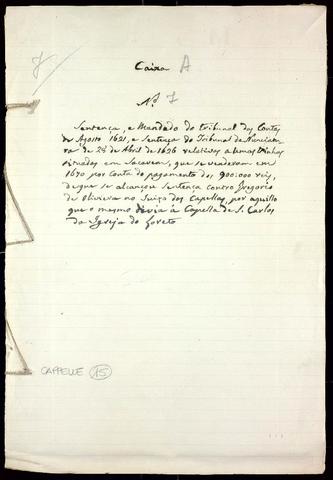 7
Caixa A
Nº 7
Sentença, e Mandado do tribunal dos Contos
de Agosto 1621, e Sentença do Tribunal da Nunciatu-
ra de 24 de Abril de 1626 relativos a humas Vinhas
situadas em Sacavem, que se venderam em
1670 por conta do pagamento dos 900:000 reis,
de que se alcançou Sentença contra Gregorio
de Oliveira no Juizo das Capellas, por aquillo
que o mesmo devia á Capella de S. Carlos
da Igreja do Loreto
CAPPELLE 15